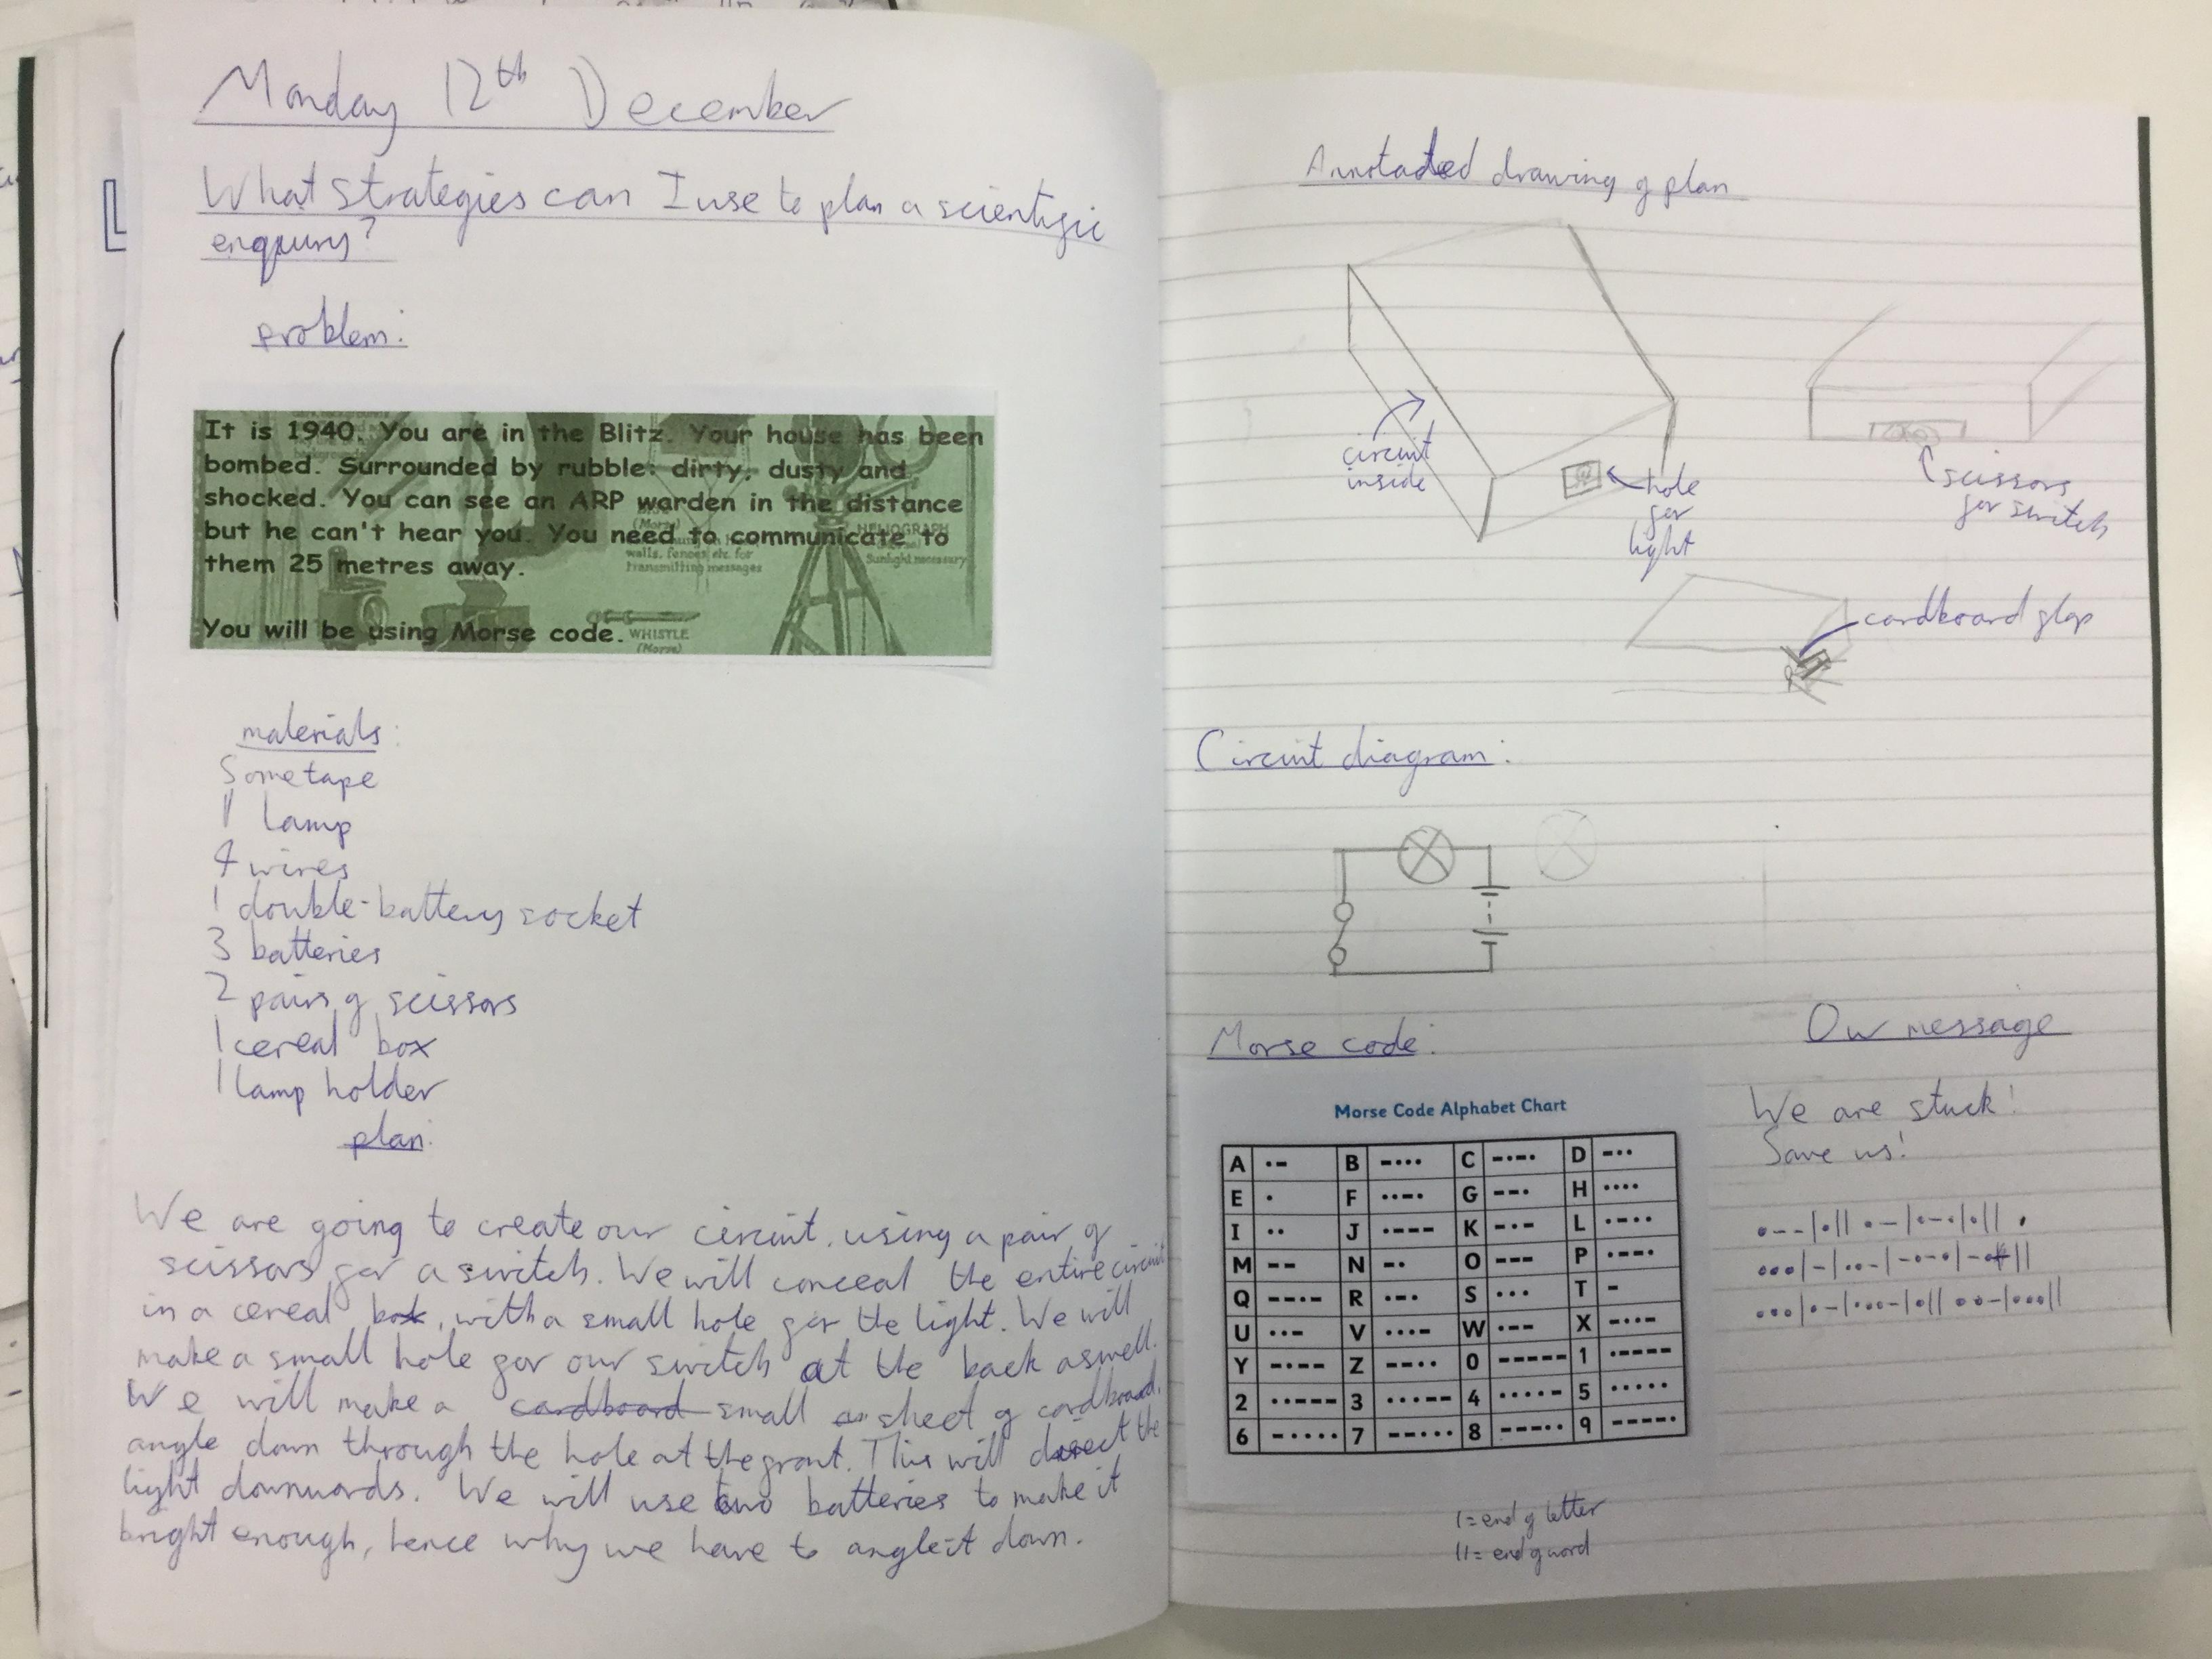 Monday 12th December
What strategies can I use to plan a scientific
enquiry?
problem:
It is 1940. You are in the Blitz. Your house has been
bombed. Surrounded by rubble: dirty, dusty and
shocked. You can see an ARP warden in the distance
but he can't hear you. You need to communicate to
them 25 metres away.
You will be using Morse code.
(Morse)
walls, fences etc. for
transmitting messages
HELIOGRAPH
Sunlight necessary
WHISTLE
(Morse)
materials:
Some tape
1 lamp
4 wires
1 double-battery socket
3 batteries
2 pairs of scissors
1 cereal box
1 lamp holder
plan:
We are going to create our circuit, using a pair of
scissors for a switch. We will conceal the entire circuit
in a cereal box, with a small hole for the light. We will
make a small hole for our switch at the back aswell.
We will make a cardboard small sheet of cardboard,
angle down through the hole at the front. This will direct the
light downwards. We will use two batteries to make it
bright enough, hence why we have to angle it down.
Annotated drawing of plan
circuit
inside
hole
for
light
scissors
for switch
cardboard flap
Circuit diagram:
Morse code:
Morse Code Alphabet Chart
A ·- B -··· C -·-· D -··
E · F ··-· G --· H ····
I ·· J ·--- K -·- L ·-··
M -- N -· O --- P ·--·
Q --·- R ·-· S ··· T -
U ··- V ···- W ·-- X -··-
Y -·-- Z --·· 0 ----- 1 ·----
2 ··--- 3 ···-- 4 ····- 5 ·····
6 -···· 7 --··· 8 ---·· 9 ----·
| = end of letter
|| = end of word
Our message
We are stuck!
Save us!
·--|·|| ·-|·-·|·||
···|-|··-|-·-·|-·-||
···|·-|···-|·|| ··-|···||